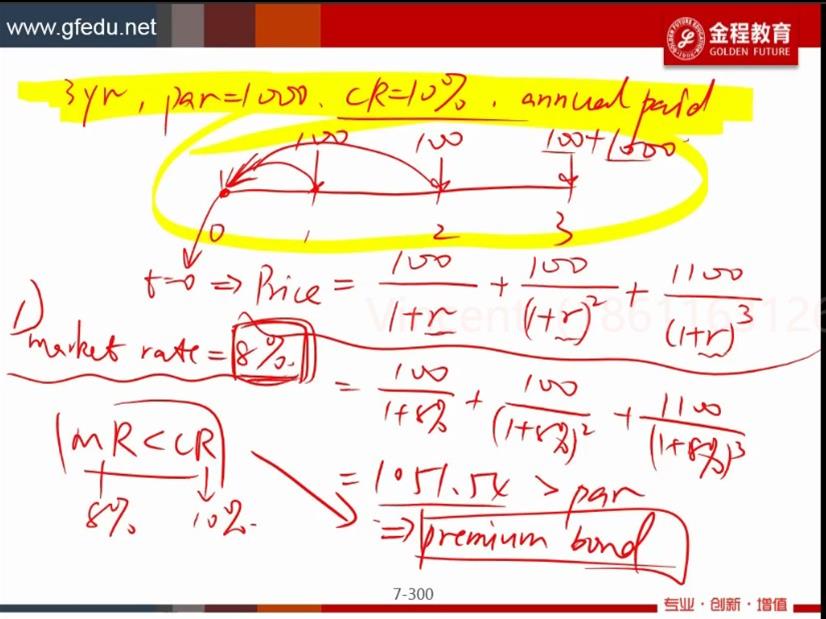 www.gfedu.net
金程教育
GOLDEN FUTURE
3yr, par=1000. CR=10%. annual paid
100 100 100+1000.
0 1 2 3
t=0 => Price = 100/(1+r) + 100/(1+r)^2 + 1100/(1+r)^3
1) market rate = 8%.
= 100/(1+8%) + 100/(1+8%)^2 + 1100/(1+8%)^3
MR < CR
8% 10%.
= 1051.54 > par
=> premium bond
7-300
专业·创新·增值